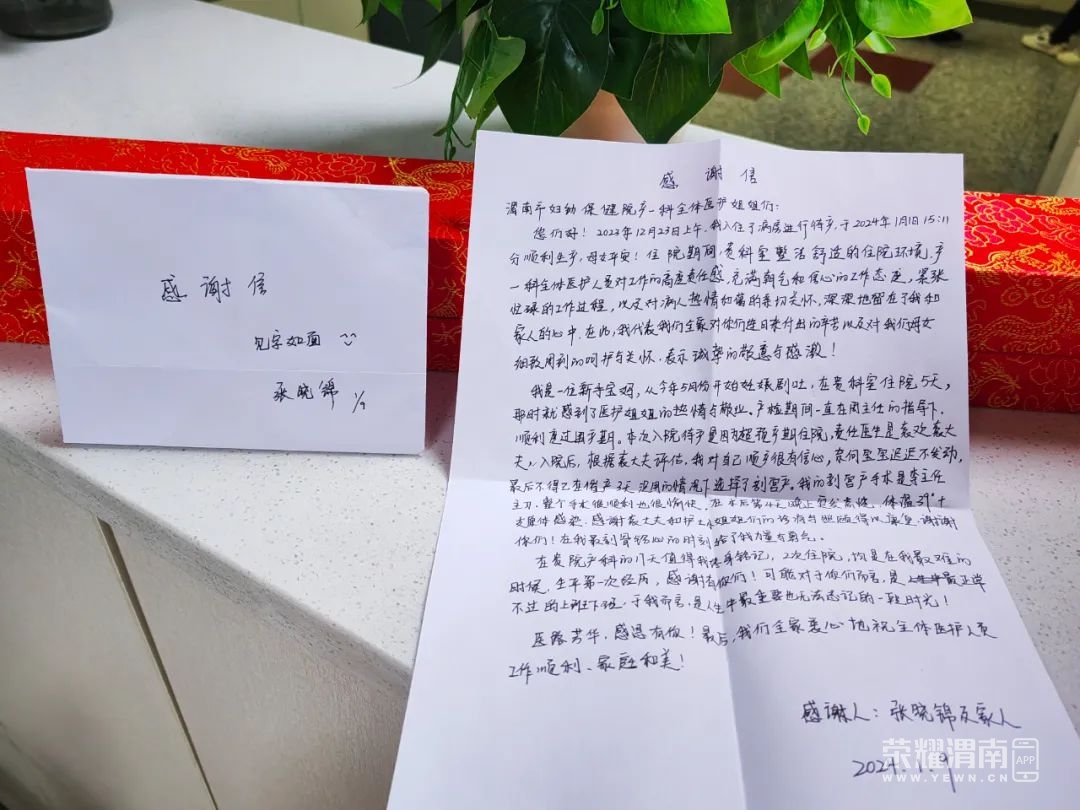 感谢信
见字如面
张晓锦 1/9
感谢信
渭南市妇幼保健院产一科全体医护姐姐们:
您们好!2023年12月23日上午,我入住了病房进行待产,于2024年1月1日15:11
分顺利生产,母女平安!住院期间,贵科室整洁舒适的住院环境,产
一科全体医护人员对工作的高度责任感,充满朝气和信心的工作态度,紧张
忙碌的工作过程,以及对病人热情和蔼的亲切关怀,深深地留在了我和
家人的心中.在此,我代表我们全家对你们连日来付出的辛苦以及对我们母女
细致周到的呵护与关怀,表示诚挚的敬意与感激!
我是一位新手宝妈,从今年5月份开始妊娠剧吐,在贵科室住院5天,
那时就感到了医护姐姐的热情与敬业。产检期间一直在周主任的指导下.
顺利度过围产期。本次入院待产是因为超预产期住院,责任医生是袁欢袁大
夫,入院后,根据袁大夫评估,我对自己顺产很有信心,奈何宝宝迟迟不发动,
最后不得已在催产2天没用的情况下选择了剖宫产。我的剖宫产手术是李主任
主刀,整个手术很顺利也很愉快.在术后第4天晚上突发高烧,体温39°+
支原体感染.感谢袁大夫和护士姐姐们的治疗与照顾得以康复,谢谢
你们!在我最刻骨铭心的时刻给了我力量与勇气。
在贵院产科的17天值得我终身铭记,2次住院,均是在我最难的
时候,生平第一次经历,感谢有你们!可能对于你们而言,是正常
不过的上班下班,于我而言,是人生中最重要也无法忘记的一段时光!
医路芳华,感恩有你!最后,我们全家衷心地祝全体医护人员
工作顺利、家庭和美!
感谢人:张晓锦及家人
2024.1.9
荣耀渭南 APP
WWW.YEWN.CN